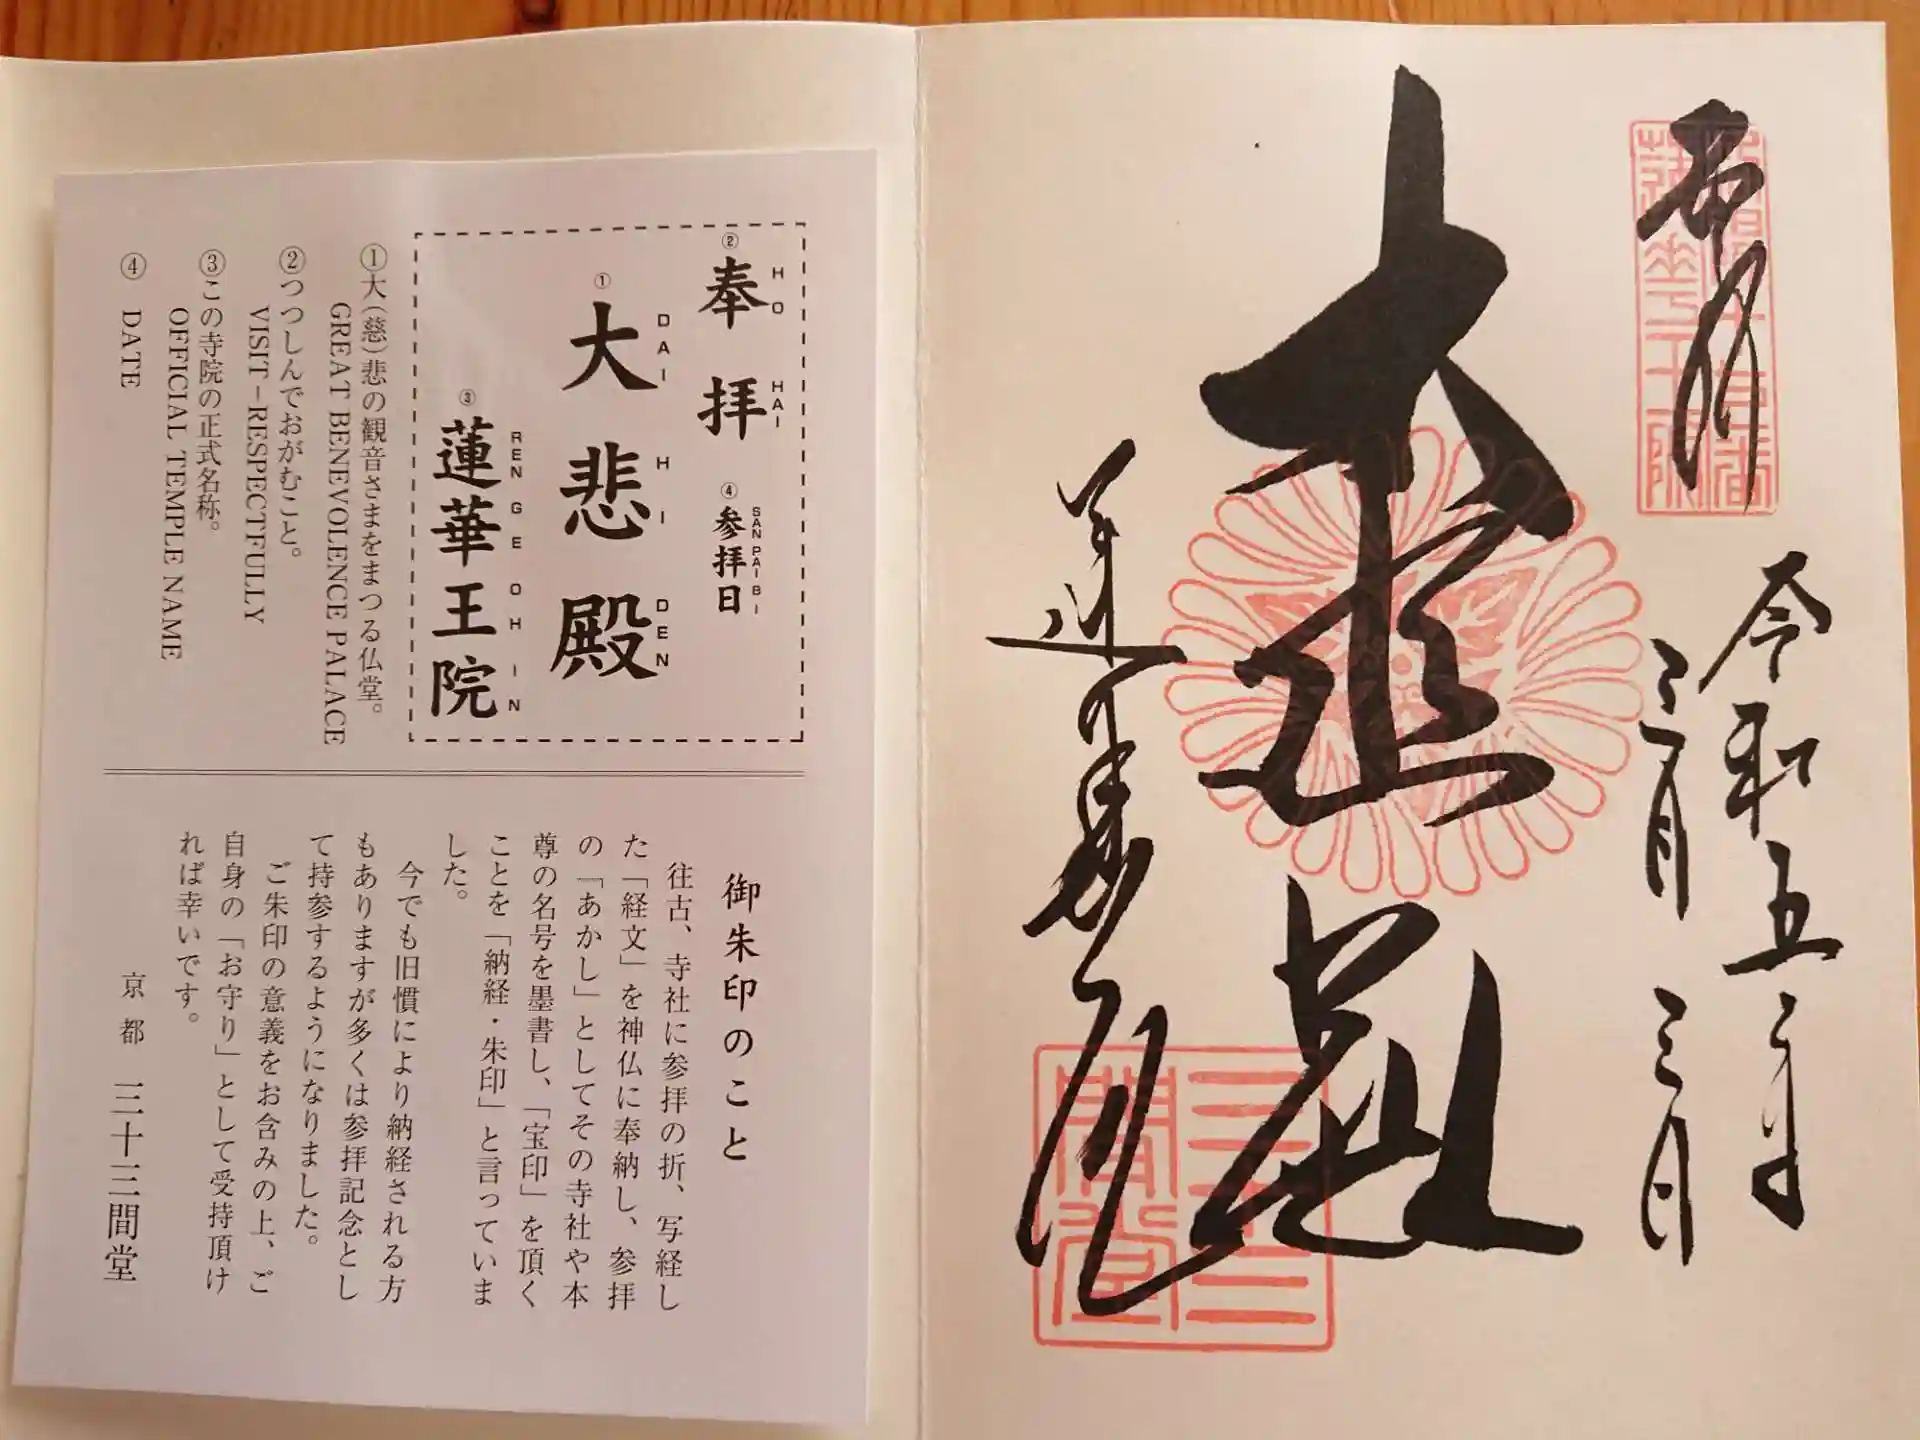 奉拝
令和五年
三月三日
大悲殿
蓮華王院
三十三間堂
② 奉拝
HO HAI
④ 参拝日
SAN PAI BI
① 大悲殿
DAI HI DEN
③ 蓮華王院
REN GE OH IN
①大(慈)悲の観音さまをまつる仏堂。
GREAT BENEVOLENCE PALACE
②つつしんでおがむこと。
VISIT-RESPECTFULLY
③この寺院の正式名称。
OFFICIAL TEMPLE NAME
④ DATE
御朱印のこと
往古、寺社に参拝の折、写経し
た「経文」を神仏に奉納し、参拝
の「あかし」としてその寺社や本
尊の名号を墨書し、「宝印」を頂く
ことを「納経・朱印」と言っていま
した。
今でも旧慣により納経される方
もありますが多くは参拝記念とし
て持参するようになりました。
ご朱印の意義をお含みの上、ご
自身の「お守り」として受持頂け
れば幸いです。
京都 三十三間堂